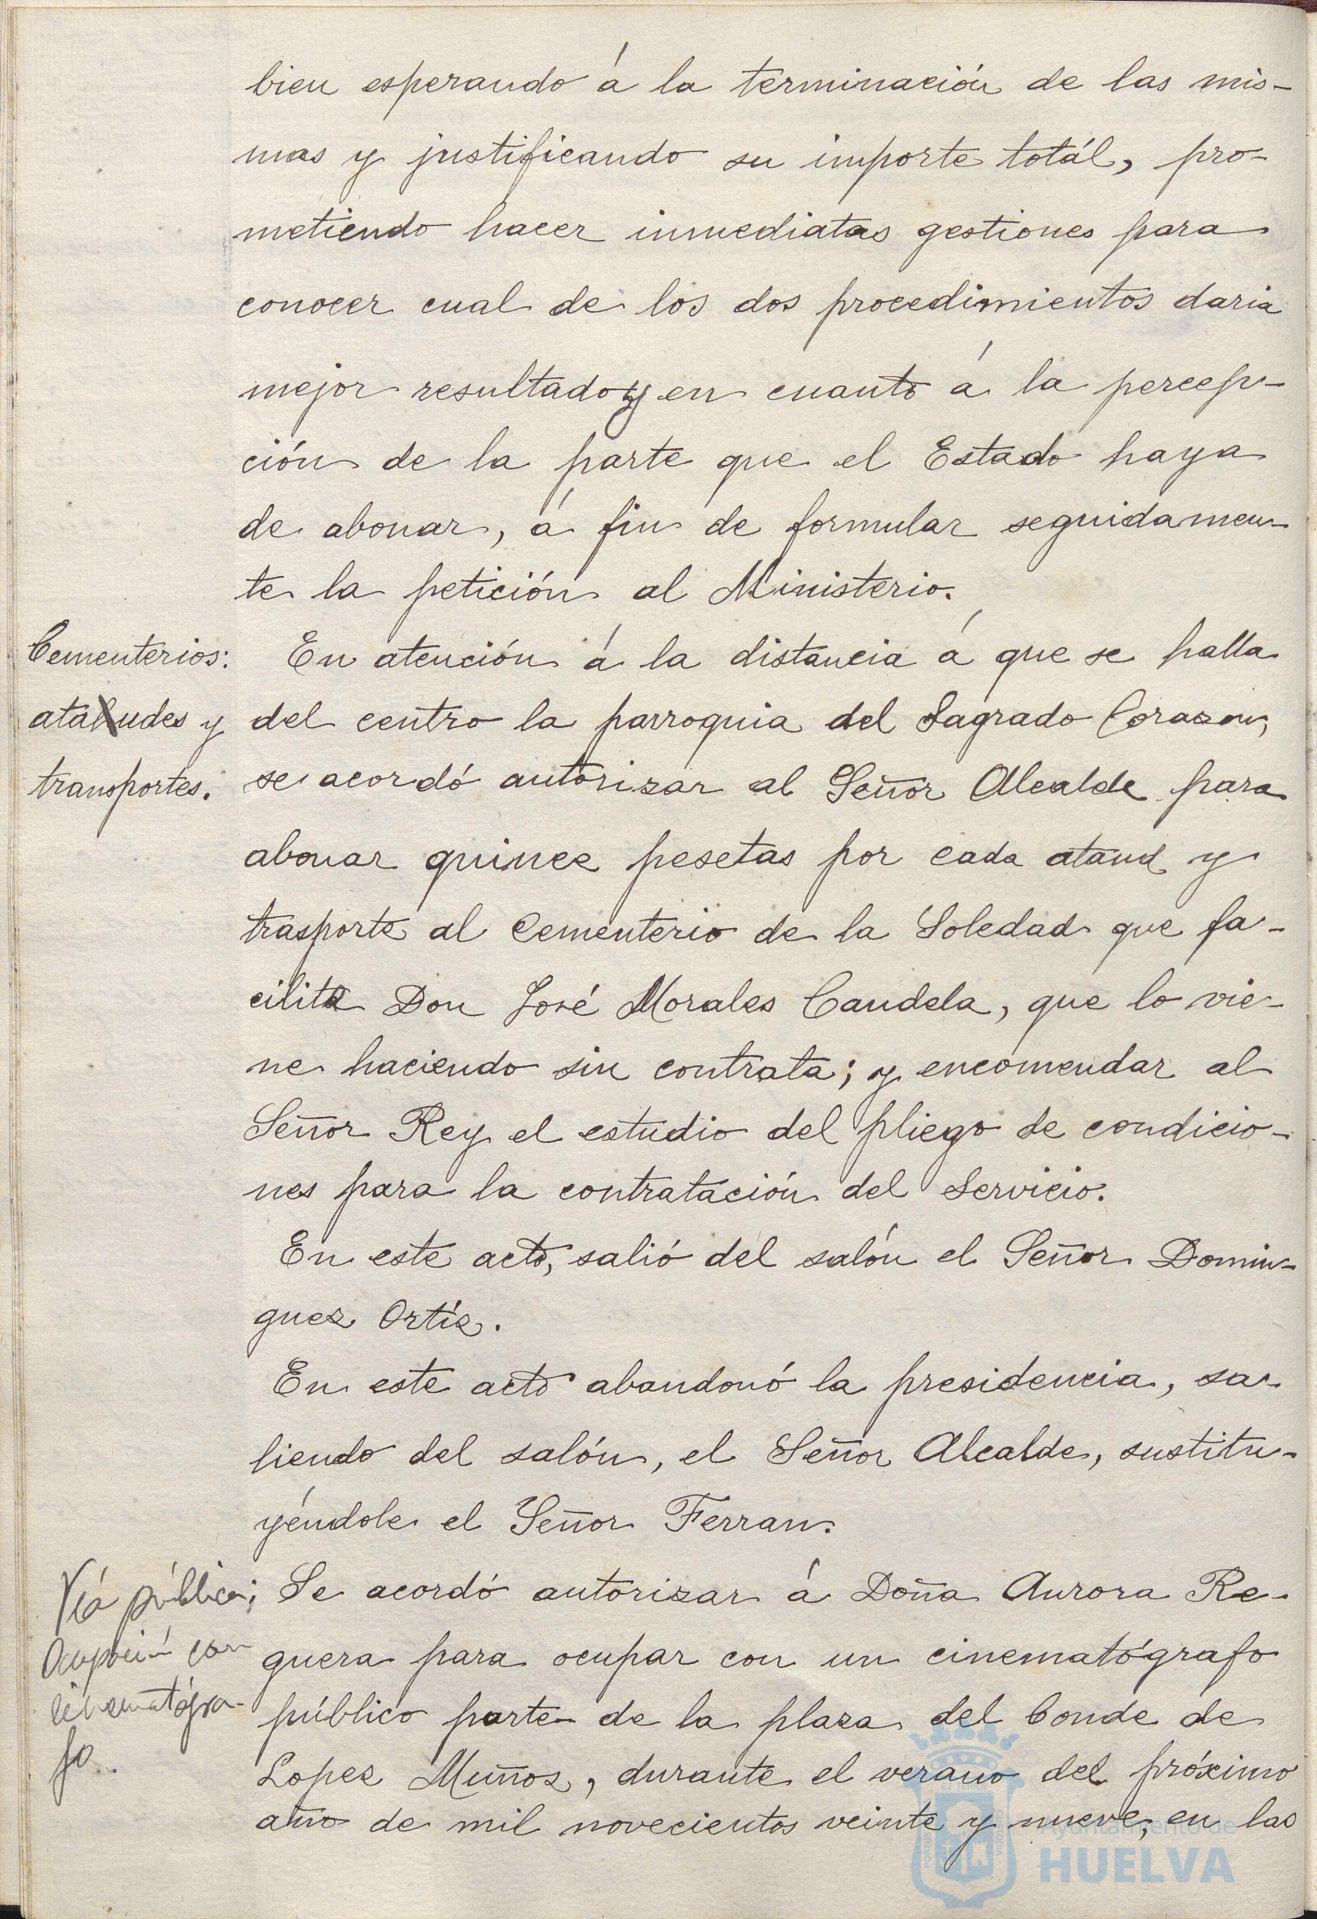 bien esperando á la terminación de las mis-
mas y justificando su importe totál, pro-
metiendo hacer inmediatas gestiones para
conocer cual de los dos procedimientos daria
mejor resultado y en cuanto á la percep-
ción de la parte que el Estado haya
de abonar, á fin de formular seguidamen-
te la petición al Ministerio.
Cementerios:
ataludes y
transportes.
En atención á la distancia á que se halla
del centro la parroquia del Sagrado Corazon,
se acordó autorizar al Señor Alcalde para
abonar quince pesetas por cada ataud y
trasporte al Cementerio de la Soledad que fa-
cilita Don José Morales Candela, que lo vie-
ne haciendo sin contrata; y encomendar al
Señor Rey el estudio del pliego de condicio-
nes para la contratación del servicio.
En este acto, salió del salón el Señor Domin-
guez Ortíz.
En este acto abandonó la presidencia, sa-
liendo del salón, el Señor Alcalde, sustitu-
yéndole el Señor Ferran.
Via pública;
Ocupación con
cinematógra-
fo.
Se acordó autorizar á Doña Aurora Re-
guera para ocupar con un cinematógrafo
público parte de la plaza del Conde de
Lopez Muñoz, durante el verano del próximo
año de mil novecientos veinte y nueve, en las
Ayuntamiento de
HUELVA